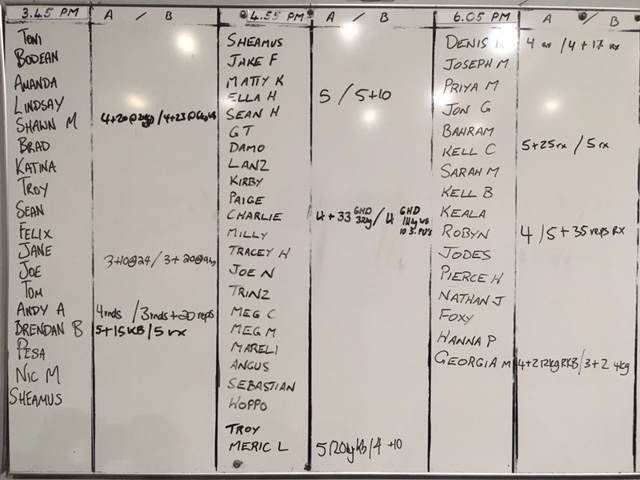 3.45 PM A / B
TONI
BODEAN
AMANDA
LINDSAY
SHAWN M
BRAD
KATINA
TROY
SEAN
FELIX
JANE 3+10@24 /
JOE
TOM
ANDY A 4rnds / 3rnds+20 reps
BRENDAN B 5+15KB / 5 rx
PESA
NIC M
SHEAMUS
4.55 PM A / B
SHEAMUS
JAKE F
MATTY K
ELLA H 5 / 5+10
SEAN H
GT
DAMO
LANZ
KIRBY
PAIGE
CHARLIE 4+33 GHD 32kg / 4 GHD
MILLY
TRACEY H
JOE N
TRINZ
MEG C
MEG M
MARELI
ANGUS
SEBASTIAN
WOPPO
TROY
MERIC L 5 (20kg KB) / 4 +10
6.05 PM A / B
DENIS 4 rx / 4+17 rx
JOSEPH M
PRIYA M
JON G
BAHRAM
KELL C 5+25rx / 5 rx
SARAH M
KELL B
KEALA
ROBYN 4 / 5+35 reps RX
JODES
PIERCE H
NATHAN J
FOXY
HANNA P
GEORGIA M 4+2 12kg RKB / 3+2 4kg